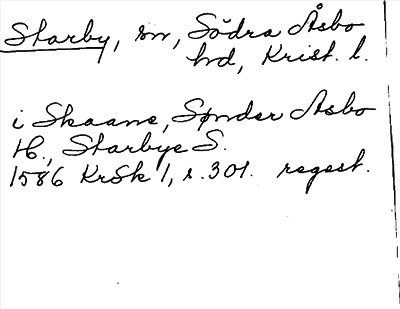 Starby, sn, Södra Åsbo
hd, Krist. l.
i Skaane, Sønder Asbo
H., Starbye S.
1586 KrSk 1, s. 301. regest.